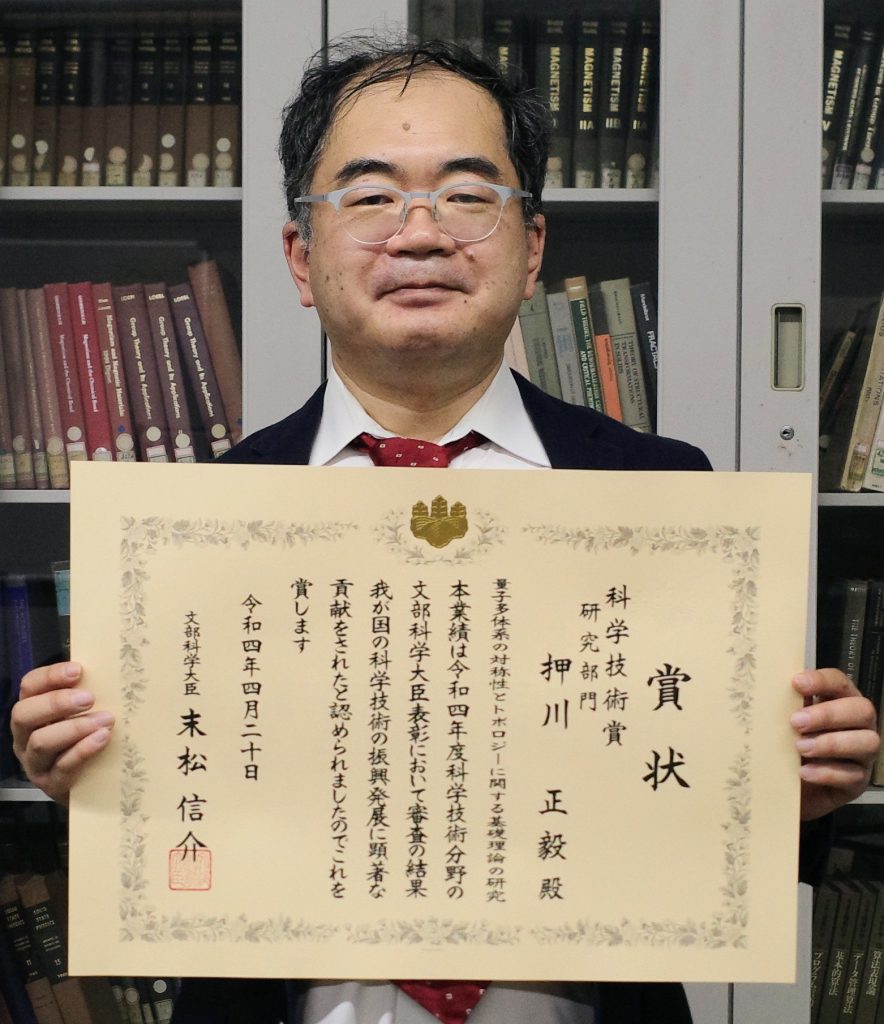 賞状
科学技術賞
研究部門
押川 正毅 殿
量子多体系の対称性とトポロジーに関する基礎理論の研究
本業績は令和四年度科学技術分野の
文部科学大臣表彰において審査の結果
我が国の科学技術の振興発展に顕著な
貢献をされたと認められましたのでこれを
賞します
令和四年四月二十日
文部科学大臣 末松信介
MAGNETISM
MAGNETISM IIA
MAGNETISM IIB
MAGNETISM
MAGNETISM V
Magnetism and the Chemical Bond
Magnetism and the Chemical Bond
Group Theory and Its Applications
Group Theory and Its Applications
Group Theory and Its Applications
THEORY OF STRUCTURAL TRANSFORMATIONS IN SOLIDS
FRACTALS
SOLID STATE PHYSICS
プログラム
基本的算法
データ管理算法
算法表現論